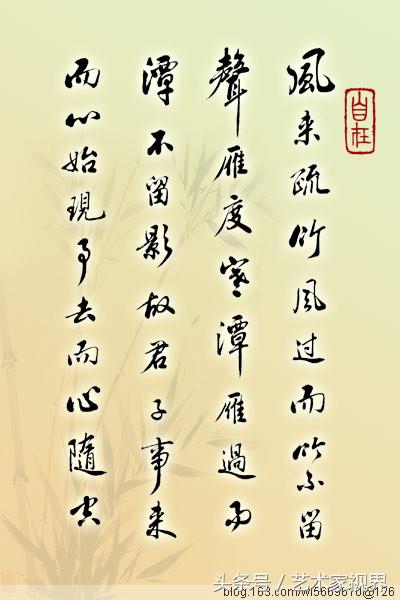 自在
風来疏竹风过而竹不留
聲雁度寒潭雁過而
潭不留影故君子事来
而心始現事去而心隨空
头条号 / 艺术家视界